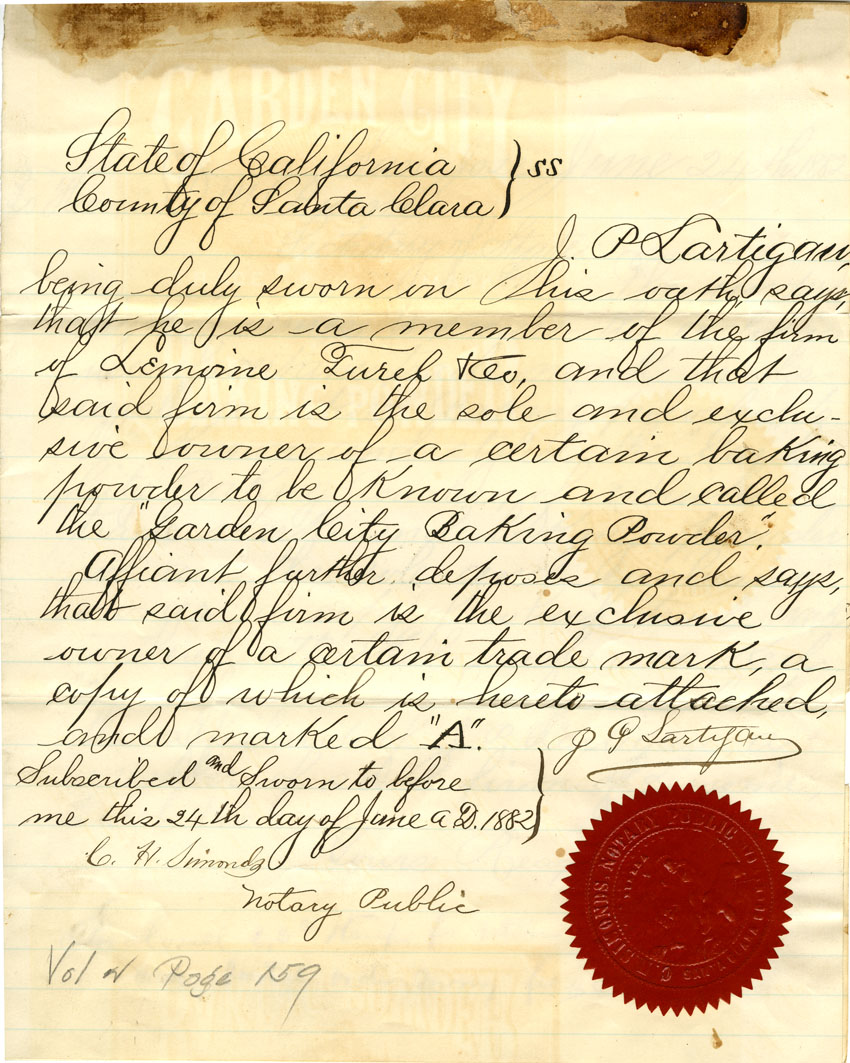 State of California } ss
County of Santa Clara
J. P Lartigau,
being duly sworn on his oath, says,
that he is a member of the firm
of Lemoine Turel & Co, and that
said firm is the sole and exclu-
sive owner of a certain baking
powder to be Known and called
the "Garden City Baking Powder".
Affiant further deposes and says,
that said firm is the exclusive
owner of a certain trade mark, a
copy of which is hereto attached,
and marked "A".
J P Lartigau
Subscribed and Sworn to before
me this 24th day of June A D. 1882
C. H. Simonds
Notary Public
Vol Page 159
GARDEN CITY
SIMONDS NOTARY PUBLIC